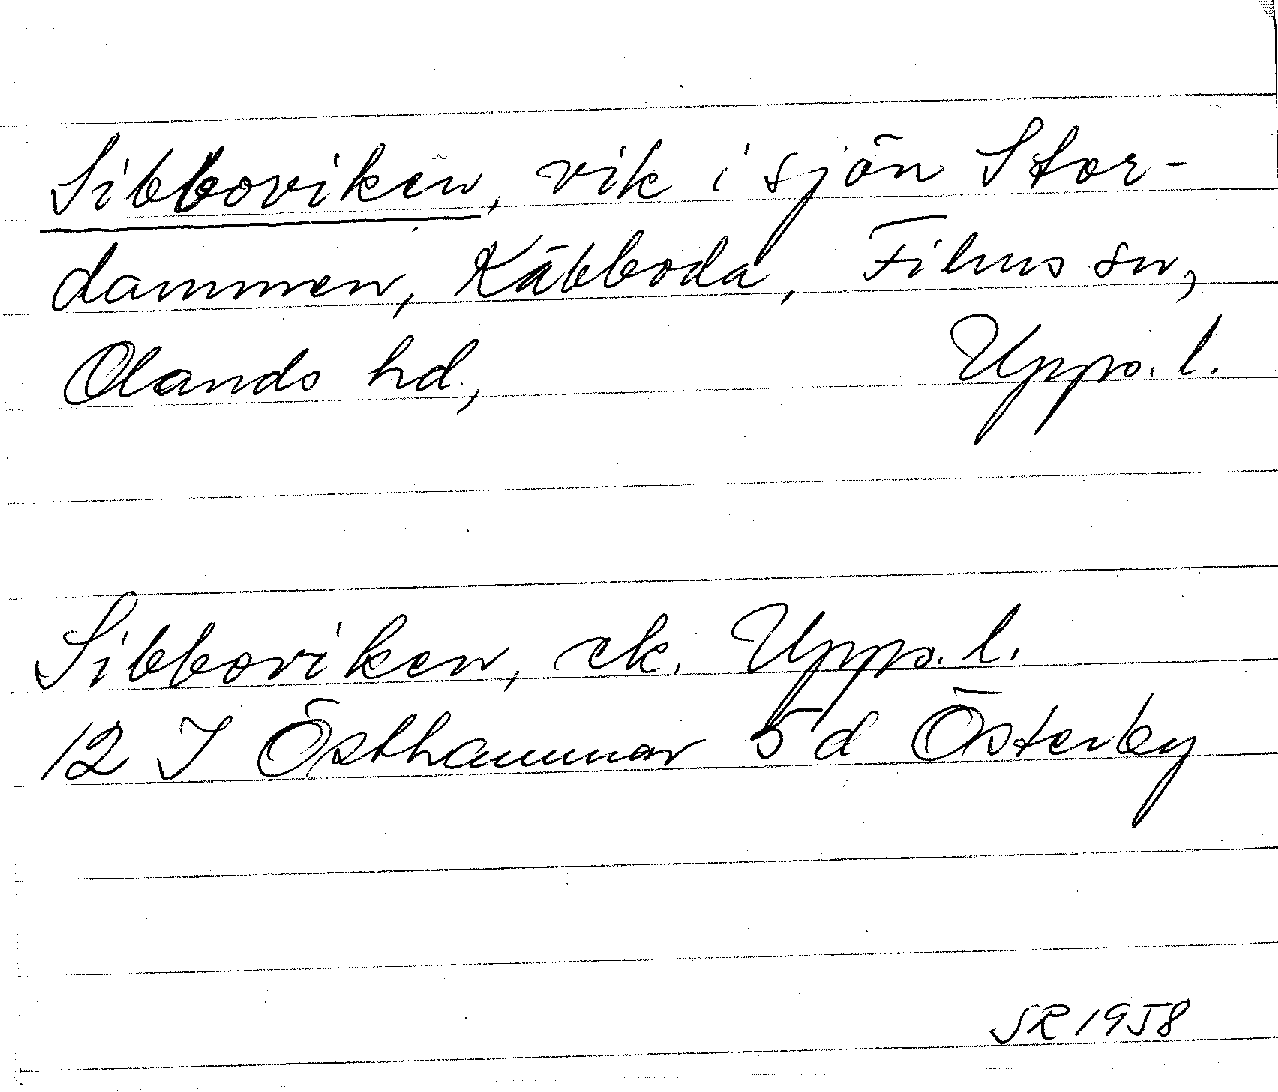 Sibboviken, vik i sjön Stor-
dammen, Käbboda, Films sn,
Olands hd, Upps. l.
Sibboviken, ek. Upps. l.
12 I Östhammar 5 d Österby
SR 1958